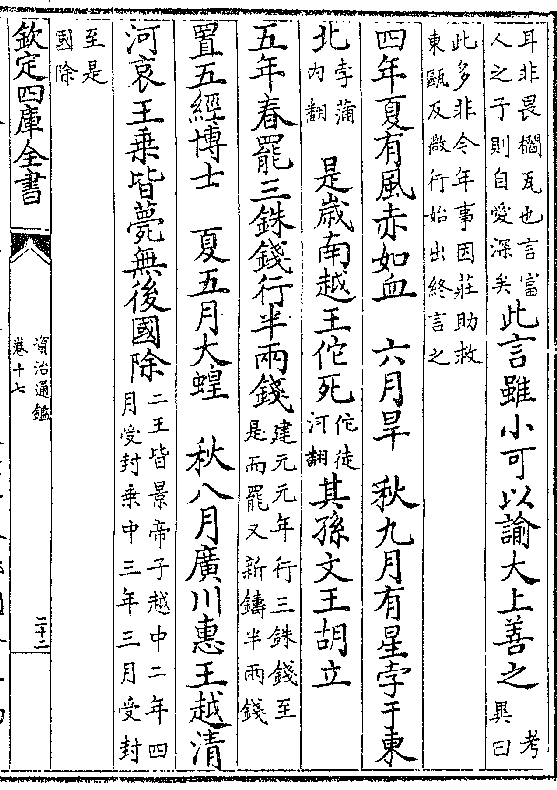 耳非畏櫩瓦也言富人之子則自愛深矣此言雖小可以諭大上善之考異曰
此多非今年事因莊助救東甌及微行始出終言之
四年夏有風赤如血　六月旱　秋九月有星孛于東
北孛蒲内翻　是歳南越王佗死佗徒河翻其孫文王胡立
五年春罷三銖錢行半兩錢建元元年行三銖錢至是而罷又新鑄半兩錢
置五經博士　夏五月大蝗　秋八月廣川惠王越清
河哀王乗皆薨無後國除二王皆景帝子越中二年四月受封乗中三年三月受封
至是國除
欽定四庫全書
資治通鑑
卷十七
二十二